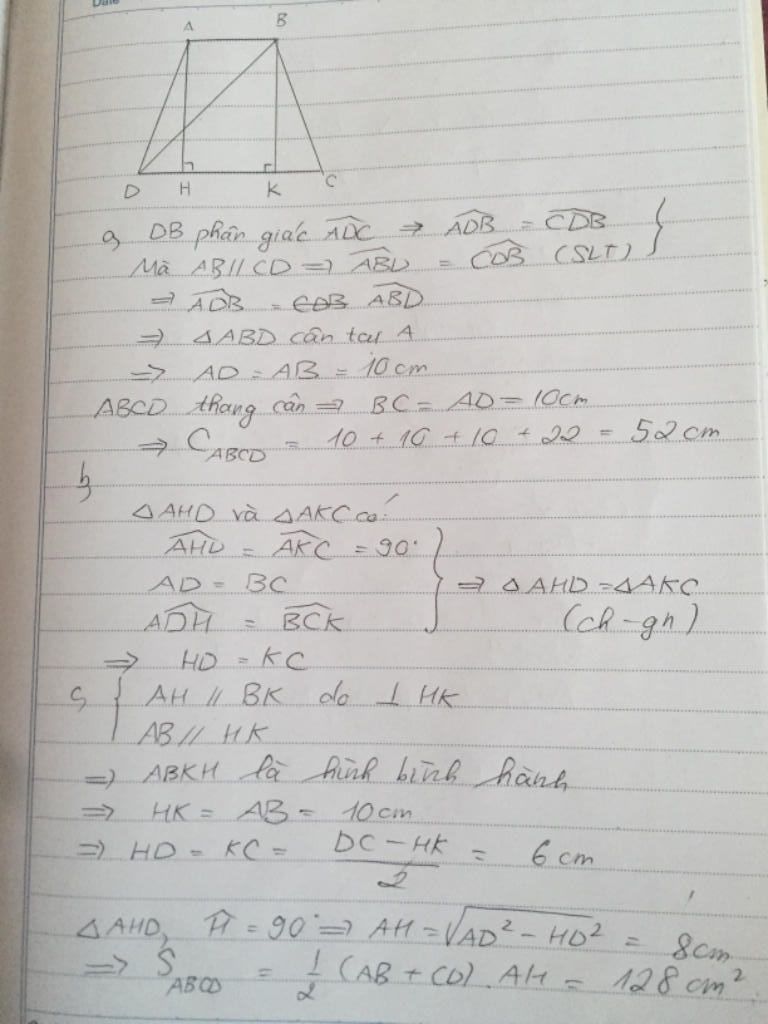 Date
A B
D H K C
a, DB phân giác ADC ⇒ ADB = CDB
Mà AB // CD ⇒ ABD = CDB (SLT)
⇒ ADB = CDB ABD
⇒ △ABD cân tại A
⇒ AD = AB = 10cm
ABCD thang cân ⇒ BC = AD = 10cm
⇒ C_ABCD = 10 + 10 + 10 + 22 = 52 cm
b,
△AHD và △AKC có:
AHD = AKC = 90°
AD = BC
ADH = BCK
⇒ △AHD = △AKC
(ch-gn)
⇒ HD = KC
c, AH // BK do ⊥ HK
AB // HK
⇒ ABKH là hình bình hành
⇒ HK = AB = 10cm
⇒ HD = KC = (DC - HK)/2 = 6 cm
△AHD, H = 90° ⇒ AH = √(AD² - HD²) = 8cm
⇒ S_ABCD = 1/2 (AB + CD) . AH = 128 cm².